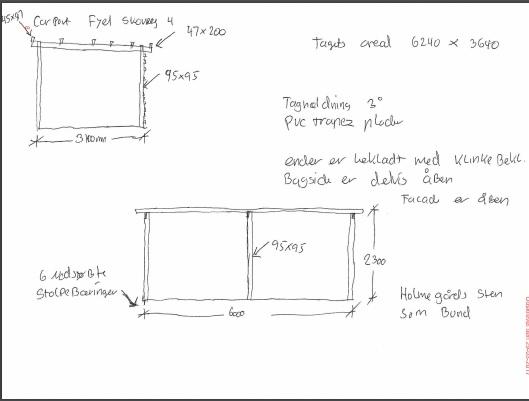 45x97
Carport Fyel skovvej 4
47x200
95x95
3400mm
Tagets areal 6240 x 3640
Taghældning 3°
PVC trapez plader
ender er bekladt med Klinke Bekl.
Bagside er delvis åben
Facad er åben
95x95
2300
6 nedstøbte
Stolpe Bæringer
6000
Holmegårds Sten
Som Bund